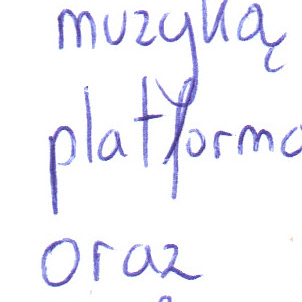 muzyką
platforma
oraz